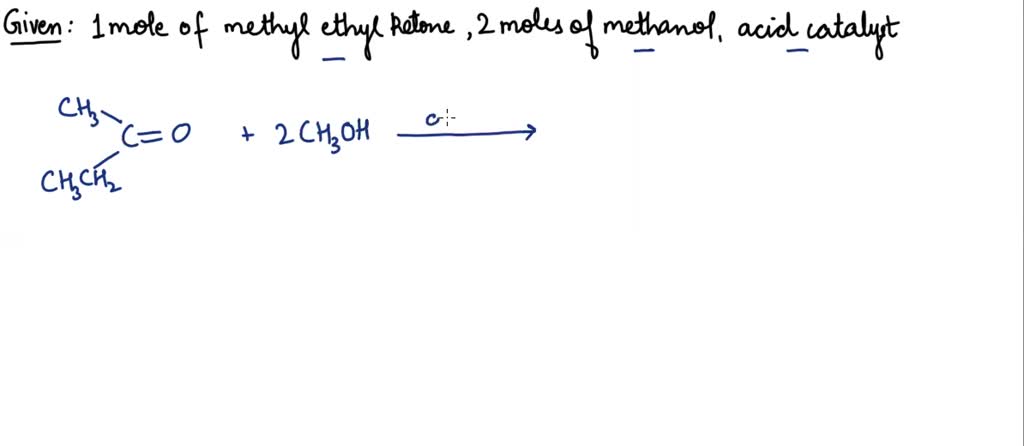 Given: 1 mole of methyl ethyl ketone, 2 moles of methanol, acid catalyst
CH₃
C=O + 2CH₃OH
CH₃CH₂